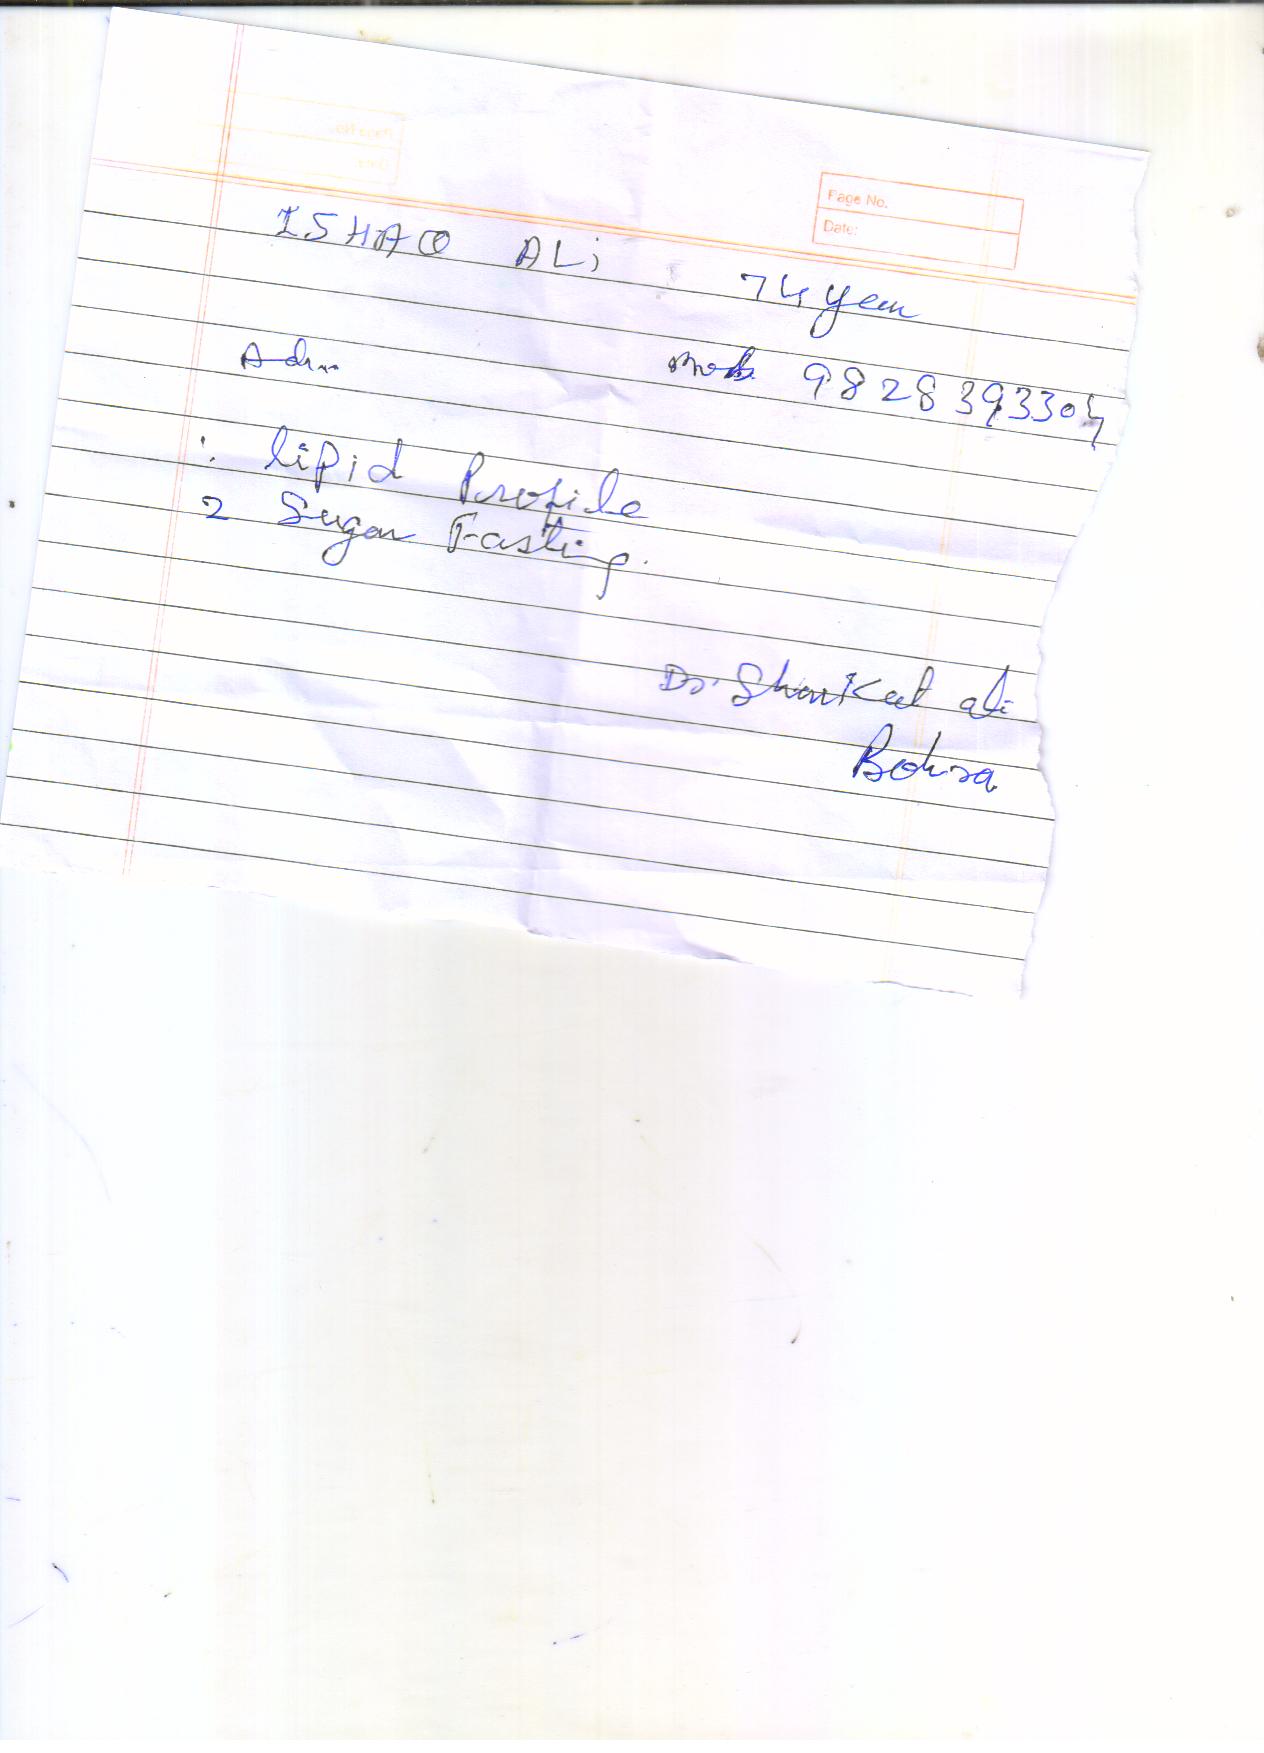 Page No.
Date:
ISHAQ ALi 74 year
Adrs Mob 9828393304
lipid Profile
2 Sugar Fasting.
Dr. Shaukat ali
Bohra